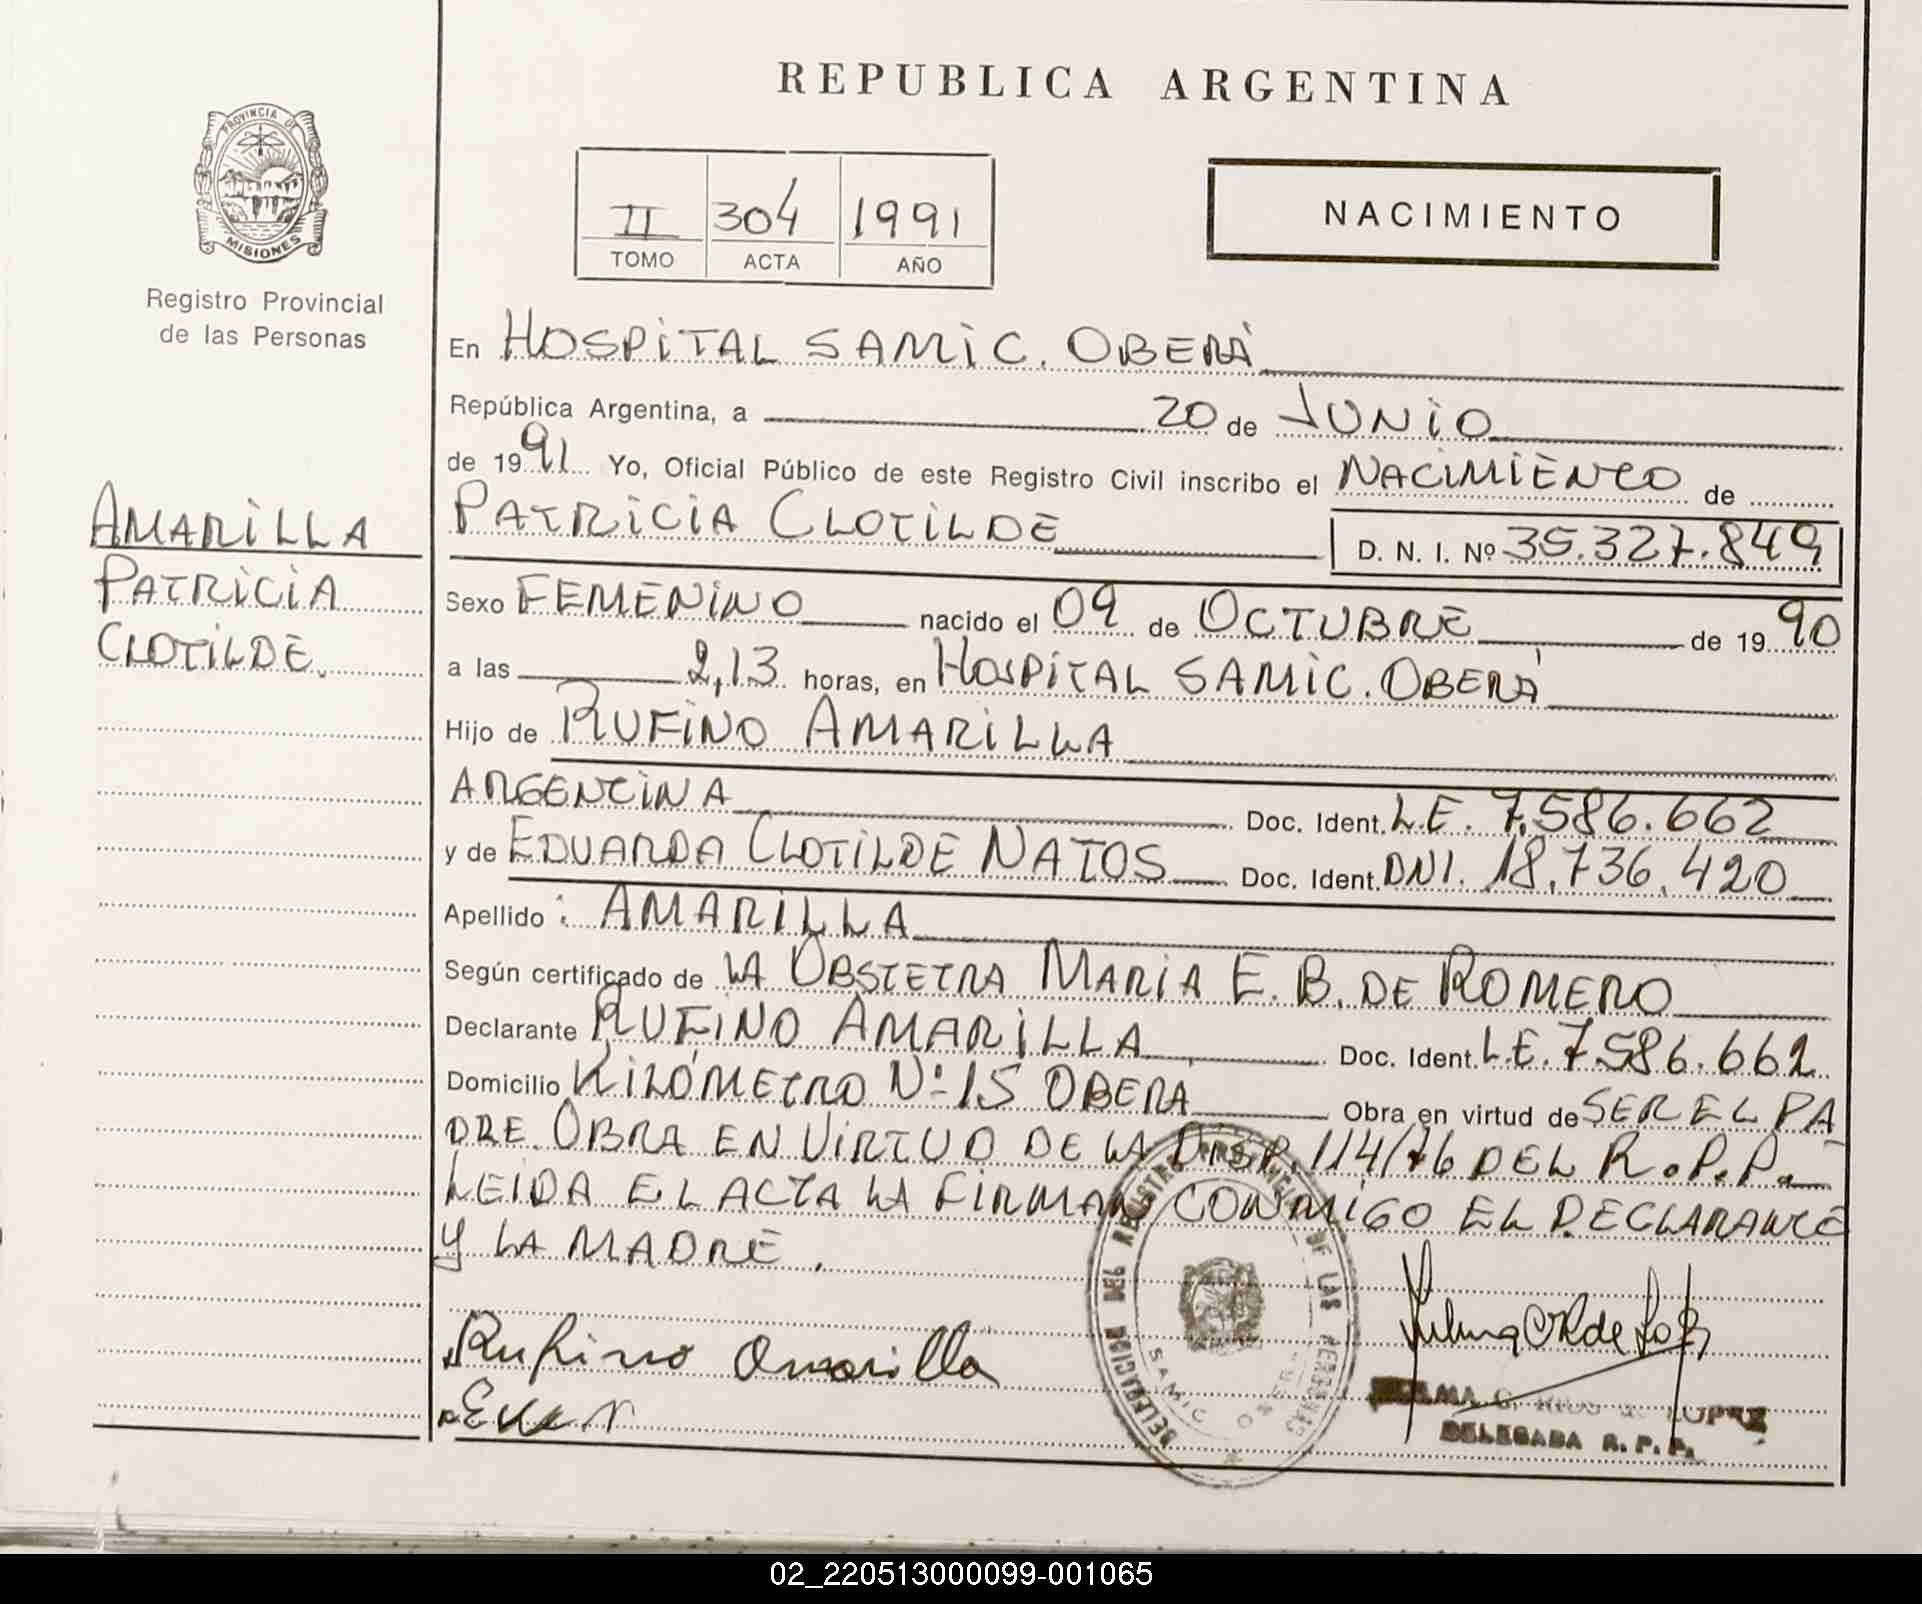 REPUBLICA ARGENTINA
PROVINCIA DE
MISIONES
Registro Provincial
de las Personas
II 304 1991
TOMO ACTA AÑO
NACIMIENTO
En HOSPITAL SAMIC. OBERÁ
República Argentina, a 20 de JUNIO
de 1991 Yo, Oficial Público de este Registro Civil inscribo el NACIMIENTO de
AMARILLA
PATRICIA
CLOTILDE.
PATRICIA CLOTILDE D. N. I. Nº 35.327.849
Sexo FEMENINO nacido el 09 de OCTUBRE de 1990
a las 2,13 horas, en HOSPITAL SAMIC. OBERÁ
Hijo de RUFINO AMARILLA
ARGENTINA Doc. Ident. L.E. 7.586.662
y de EDUARDA CLOTILDE NATOS Doc. Ident. DNI. 18.736.420
Apellido : AMARILLA
Según certificado de LA OBSTETRA MARIA E. B. DE ROMERO
Declarante RUFINO AMARILLA Doc. Ident. L.E. 7.586.662
Domicilio KILÓMETRO Nº 15 OBERA Obra en virtud de SER EL PA
DRE. OBRA EN VIRTUD DE LA DISP. 114/76 DEL R.P.P.
LEIDA EL ACTA LA FIRMAN CONMIGO EL DECLARANTE
Y LA MADRE.
Rufino Amarilla
DELEGACION DEL REGISTRO PROVINCIAL DE LAS PERSONAS
SAMIC OBERA
LOPEZ
DELEGADA R. P. P.
02_220513000099-001065